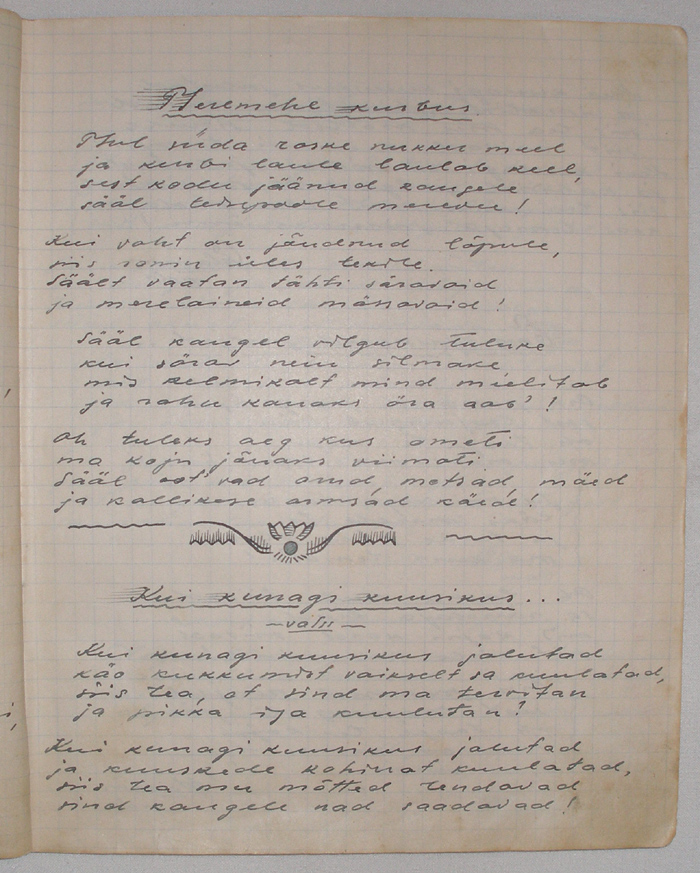 Meremehe kurbus.
Mul süda raske nukker meel
ja kurbi laule laulab keel,
sest kodu jäänud kaugele
sääl teispoole merevee!
Kui vaht on jäudnud lõpule,
siis ronin üles tekile.
Säält vaatan tähti säravaid
ja merelaineid mässavaid!
Sääl kaugel vilgub tuluke
kui särav neiu silmake
mis kelmikalt mind meelitab
ja rahu kauaks ära aab'!
Oh tuleks aeg kus ometi
ma koju jäuaks viimati
Sääl oot'vad arud, metsad, mäed
ja kallikese armsad käed!
Kui kunagi kuusikus...
valss
Kui kunagi kuusikus jalutad
käo kukkumist vaikselt sa kuulatad,
siis tea, et sind ma tervitan
ja pikka iga kuulutan!
Kui kunagi kuusikus jalutad
ja kuuskede kohinat kuulatad,
siis tea mu mõtted rendavad
sind kaugele nad saadavad!